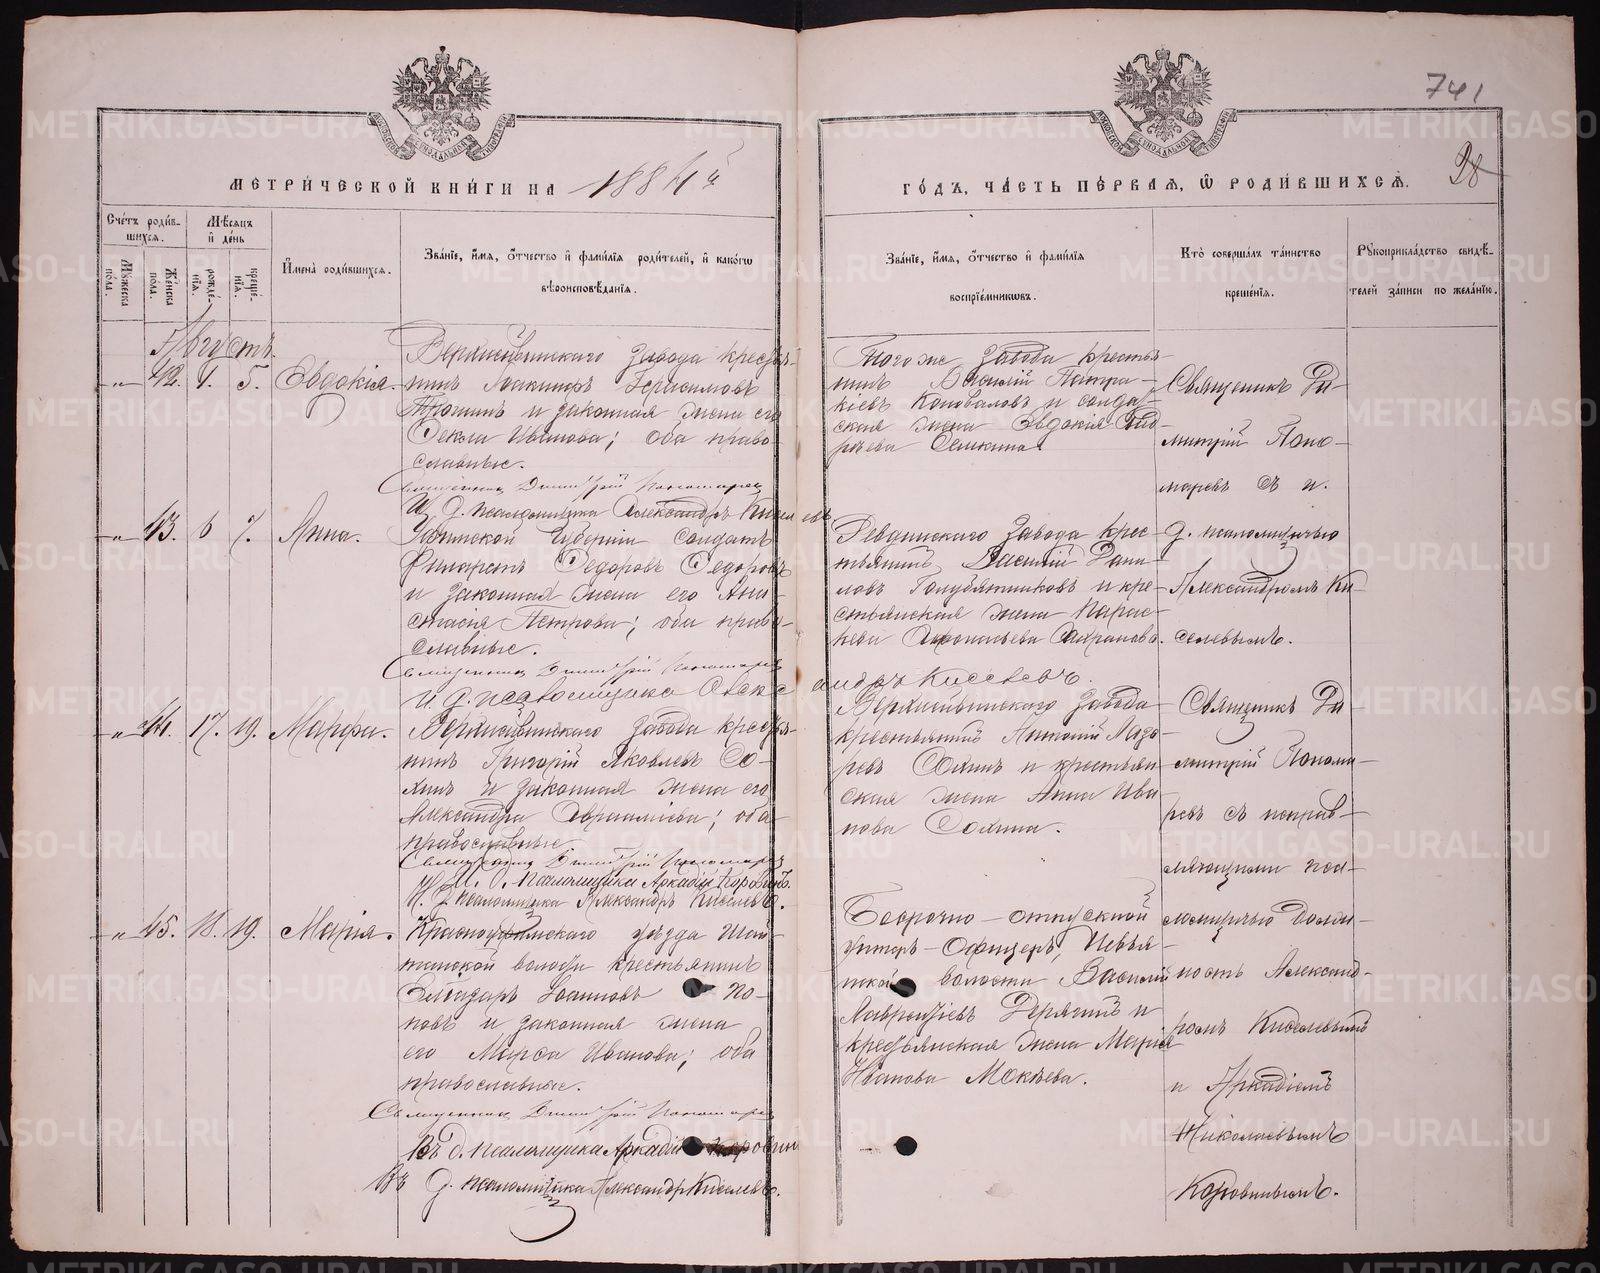 741
28
МЕТРИ́ЧЕСКОЙ КНИ́ГИ НА 1884й
ГО́ДЪ, ЧА́СТЬ ПЕ́РВАЯ, Ѿ РОДИ́ВШИХСѦ.
Сче́тъ роди́в-
шихсѧ.
Мѣ́сѧцъ
и҆ де́нь
Мꙋ́жеска
по́ла.
Же́нска
пола.
рожде́-
нїѧ.
креще́-
нїѧ.
И҆мена̀ роди́вшихсѧ.
Зва́нїе, и҆́мѧ, ѻ҆́тчество и҆ фами́лїѧ роди́телей, и҆ како́гѡ
вѣроисповѣ́данїѧ.
Зва́нїе, и҆́мѧ, ѻ҆́тчество и҆ фами́лїѧ
воспрїе́мникѡвъ.
Кто̀ соверша́лъ та́инство
креще́нїѧ.
Рꙋкоприкла́дство свидѣ́-
телей за́писи по жела́нїю.
Августъ.
42. 4. 5. Евдокія.
Верхисвинскаго Завода крестья-
нинъ Іоакимъ Герасимовъ
Трошинъ и законная жена его
Ѳекла Иванова; оба право-
славные.
Священникъ Димитрій Пономаревъ
И. д. псаломщика Александръ Киселевъ
Того же Завода крестья-
нинъ Василій Патра-
кіевъ Коноваловъ и солдат-
ская жена Евдокія
Семкина.
Священникъ Ди-
митрій Поно-
маревъ съ и.
д. псаломщичью
Александромъ Ки-
селевымъ.
43. 6 7. Анна.
Уфимской Губерніи солдатъ
Филаретъ Ѳедоровъ Ѳедоровъ
и законная жена его Ана-
стасія Петрова; оба право-
славные.
Священникъ Димитрій Пономаревъ
И. д. псаломщика Александръ Киселевъ.
Ревдинскаго Завода крес-
тьянинъ Василій Дани-
ловъ Голубятниковъ и кре-
стьянская жена Парас-
кева
44. 17. 19. Марѳа.
Верхисвинскаго Завода крестья-
нинъ Григорій Яковлевъ Со-
хинъ и законная жена его
Александра Евраміева; оба
православные.
Священникъ Димитрій Пономаревъ
И. д. псаломщика Аркадій Коровинъ.
И. д. псаломщика Александръ Киселевъ.
Верхисвинскаго Завода
крестьянинъ Антоній Лаза-
ревъ Сохинъ и крестьян-
ская жена Анна Ива-
нова Сохина.
Священникъ Ди-
митрій Понома-
ревъ съ исправ-
ляющими пса-
ломщичью должн-
ность Александ-
ромъ Киселевымъ
и Аркадіемъ
Николаевымъ
Коровинымъ.
45. 18. 19. Марія.
Красноуфимскаго уѣзда Шай-
танской волости крестьянинъ
Елеазаръ Іоанновъ По-
повъ и законная жена
его Марѳа Иванова; оба
православные.
Священникъ Димитрій Пономаревъ
д. псаломщика Аркадій Коровинъ
д. псаломщика Александръ Киселевъ.
Безсрочно-отпускной
унтеръ-офицеръ, Невья-
нской волости Василій
Лаврентіевъ Дерягинъ и
крестьянская жена Марія
Иванова Мокѣева.